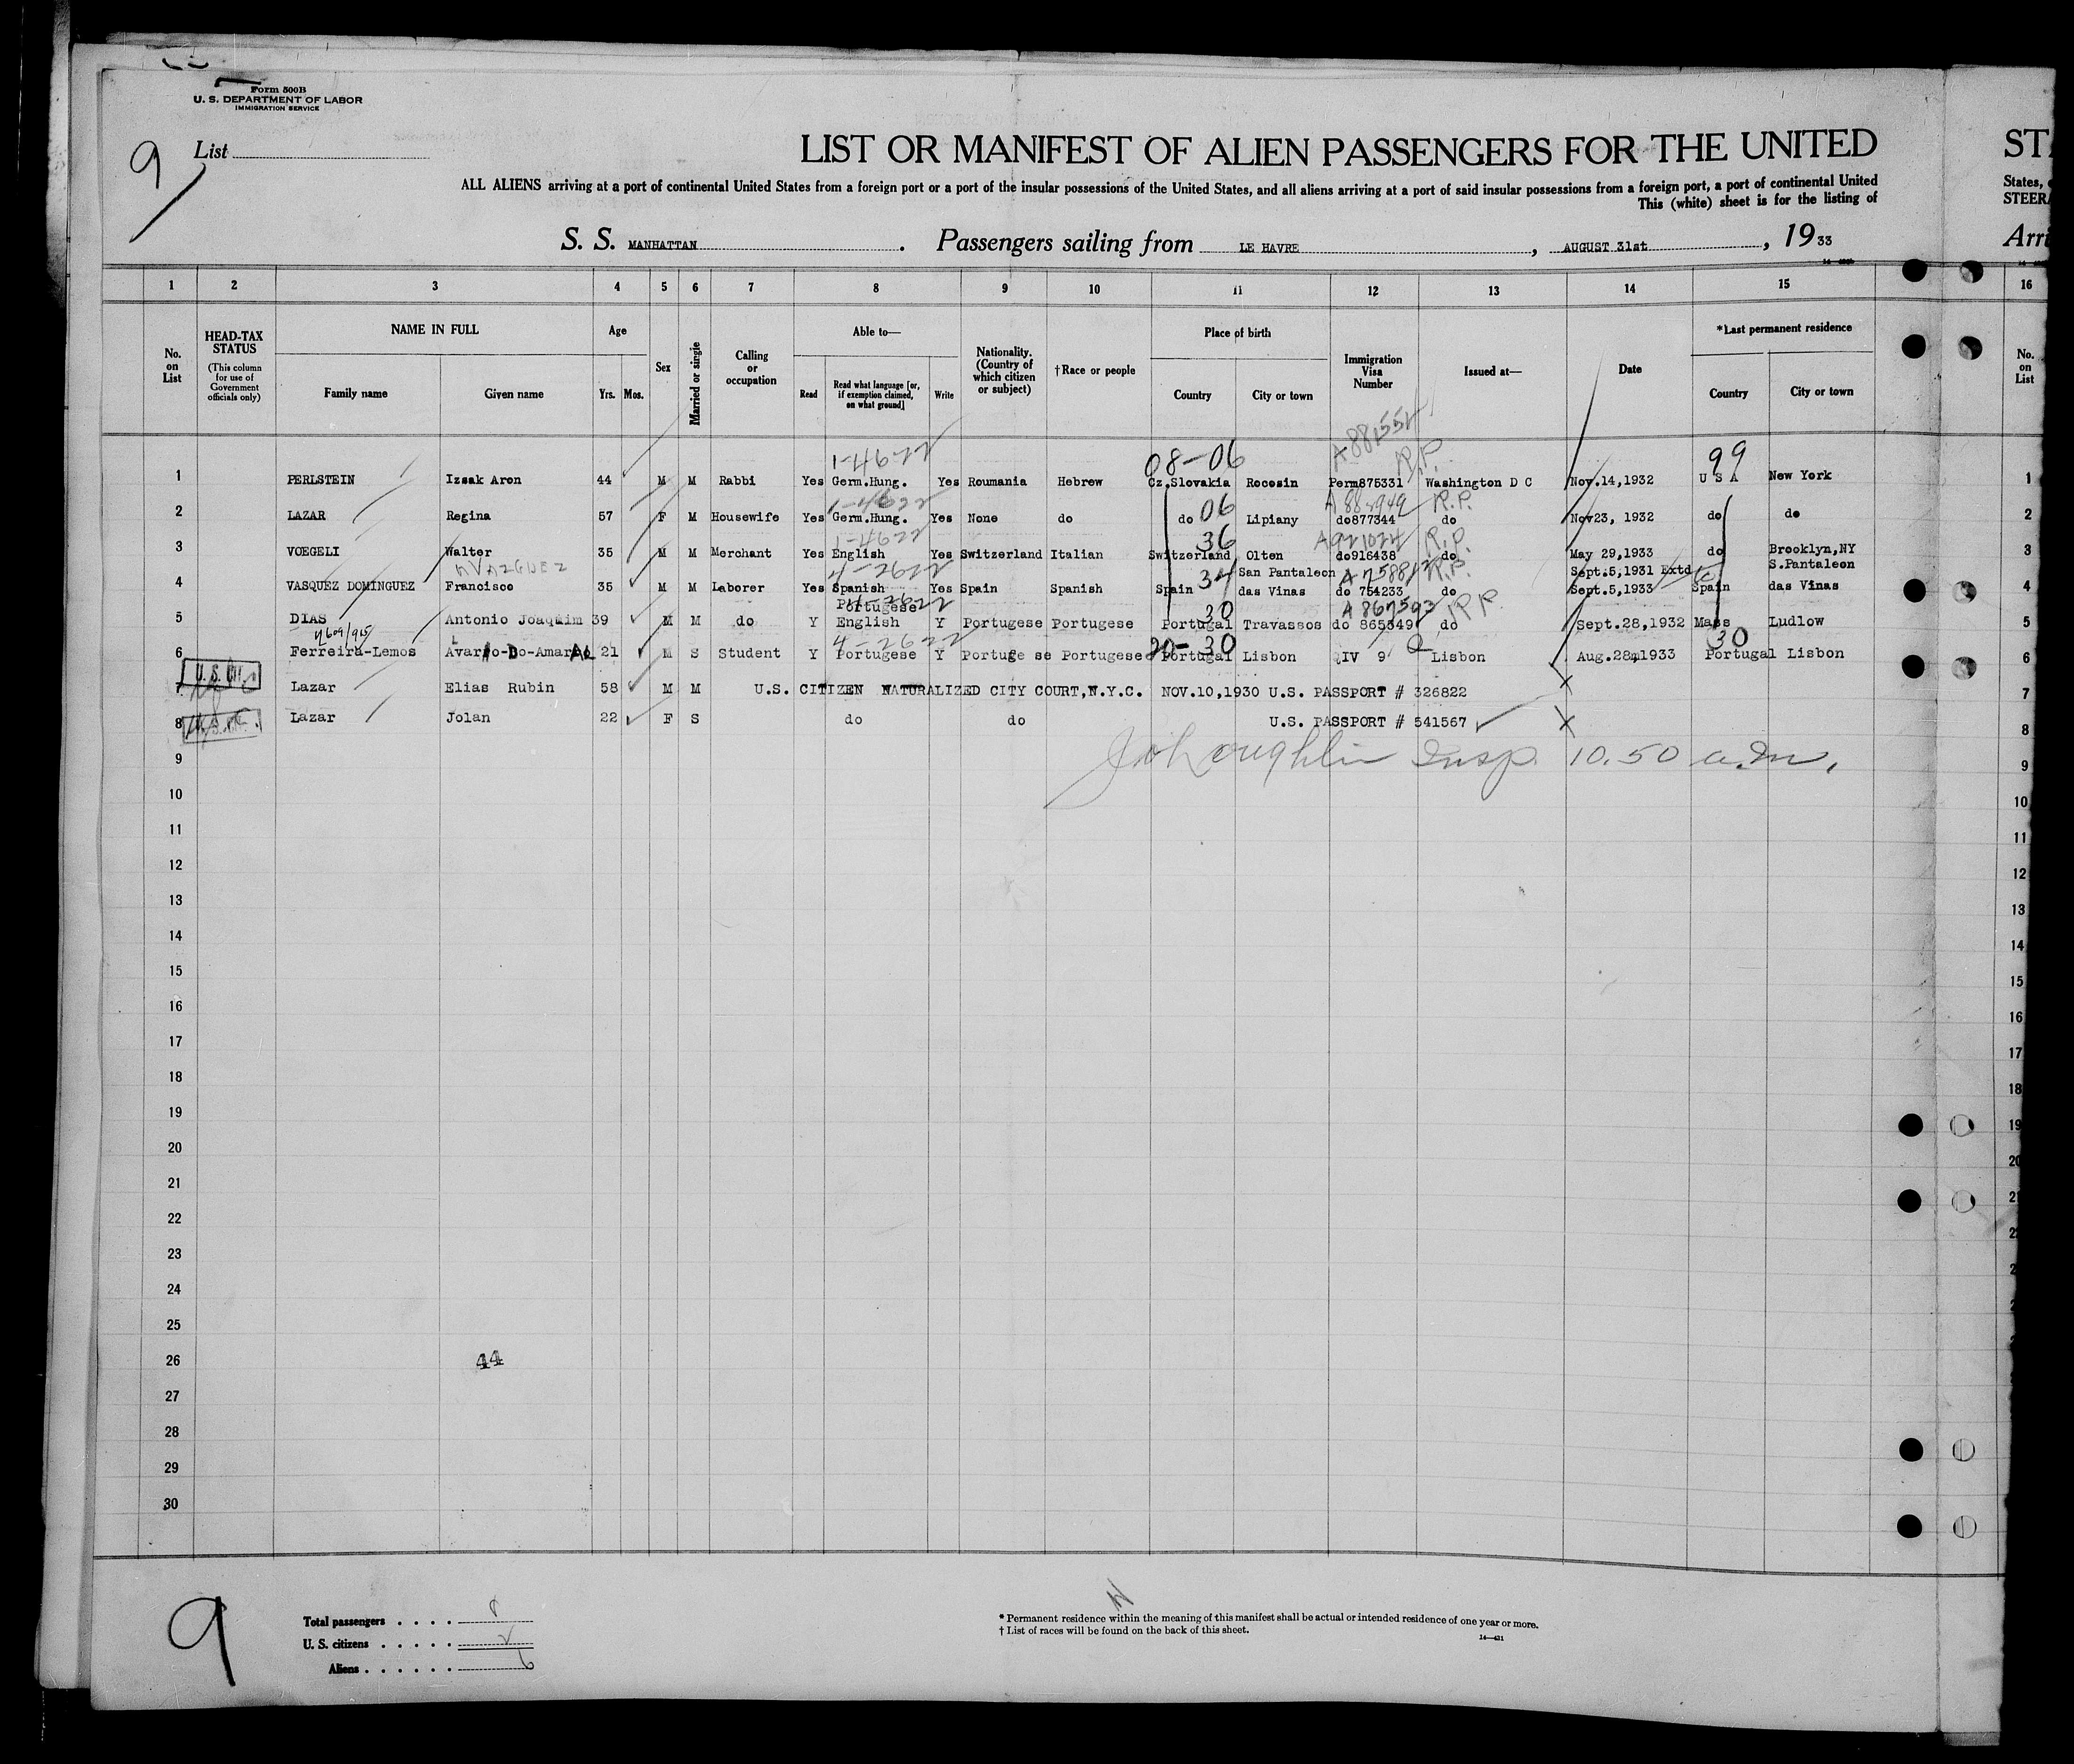 Form 500B
U. S. DEPARTMENT OF LABOR
IMMIGRATION SERVICE
9
List
LIST OR MANIFEST OF ALIEN PASSENGERS FOR THE UNITED
ALL ALIENS arriving at a port of continental United States from a foreign port or a port of the insular possessions of the United States, and all aliens arriving at a port of said insular possessions from a foreign port, a port of continental United
This (white) sheet is for the listing of
S. S. MANHATTAN . Passengers sailing from LE HAVRE , AUGUST 31st , 19 33
STA
States,
STEERA
Arri
1 2 3 4 5 6 7 8 9 10 11 12 13 14 15 16
No. on List
HEAD-TAX STATUS
(This column for use of Government officials only)
NAME IN FULL
Family name Given name
Age
Yrs. Mos.
Sex
Married or single
Calling or occupation
Able to—
Read Read what language [or, if exemption claimed, on what ground] Write
Nationality. (Country of which citizen or subject)
†Race or people
Place of birth
Country City or town
Immigration Visa Number
Issued at—
Date
*Last permanent residence
Country City or town
No. on List
1-46-22 08-06 A881551 R.P. 99
1 PERLSTEIN Izsak Aron 44 M M Rabbi Yes Germ.Hung. Yes Roumania Hebrew Cz.Slovakia Rocosin Perm875331 Washington D C Nov.14,1932 U S A New York 1
1-4622 06 R.P.
2 LAZAR Regina 57 F M Housewife Yes Germ.Hung. Yes None do do Lipiany do877344 do Nov23, 1932 do do 2
1-4622 36 A921024 R.P.
3 VOEGELI Walter 35 M M Merchant Yes English Yes Switzerland Italian Switzerland Olten do916438 do May 29,1933 do Brooklyn,NY 3
VAZGUEZ 4-2622 34 San Pantaleon R.P. Sept.5,1931 Extd S.Pantaleon
4 VASQUEZ DOMINGUEZ Francisco 35 M M Laborer Yes Spanish Yes Spain Spanish Spain das Vinas do 754233 do Sept.5,1933 Spain das Vinas 4
Portugese 4-2622 30 A 867593 R.P.
5 DIAS Antonio Joaquim 39 M M do Y English Y Portugese Portugese Portugal Travassos do 865349 do Sept.28,1932 Mass Ludlow 5
4-2622 30 Q 30
6 Ferreira-Lemos Avaro-Do-Amaral 21 M S Student Y Portugese Y Portuge se Portugese Portugal Lisbon QIV 9 Lisbon Aug.28m1933 Portugal Lisbon 6
U.S. CIT.
7 Lazar Elias Rubin 58 M M U.S. CITIZEN NATURALIZED CITY COURT,N.Y.C. NOV.10,1930 U.S. PASSPORT # 326822 X 7
8 Lazar Jolan 22 F S do do U.S. PASSPORT # 541567 X 8
9 Insp. 10.50 a.m. 9
10 10
11 11
12 12
13 13
14 14
15 15
16 16
17 17
18 18
19 19
20 20
21 21
22
23
24
25
26 44
27
28
29
30
9
Total passengers . . . . 8
U. S. citizens . . . . . 2
Aliens . . . . . . 6
* Permanent residence within the meaning of this manifest shall be actual or intended residence of one year or more.
† List of races will be found on the back of this sheet.
14—431